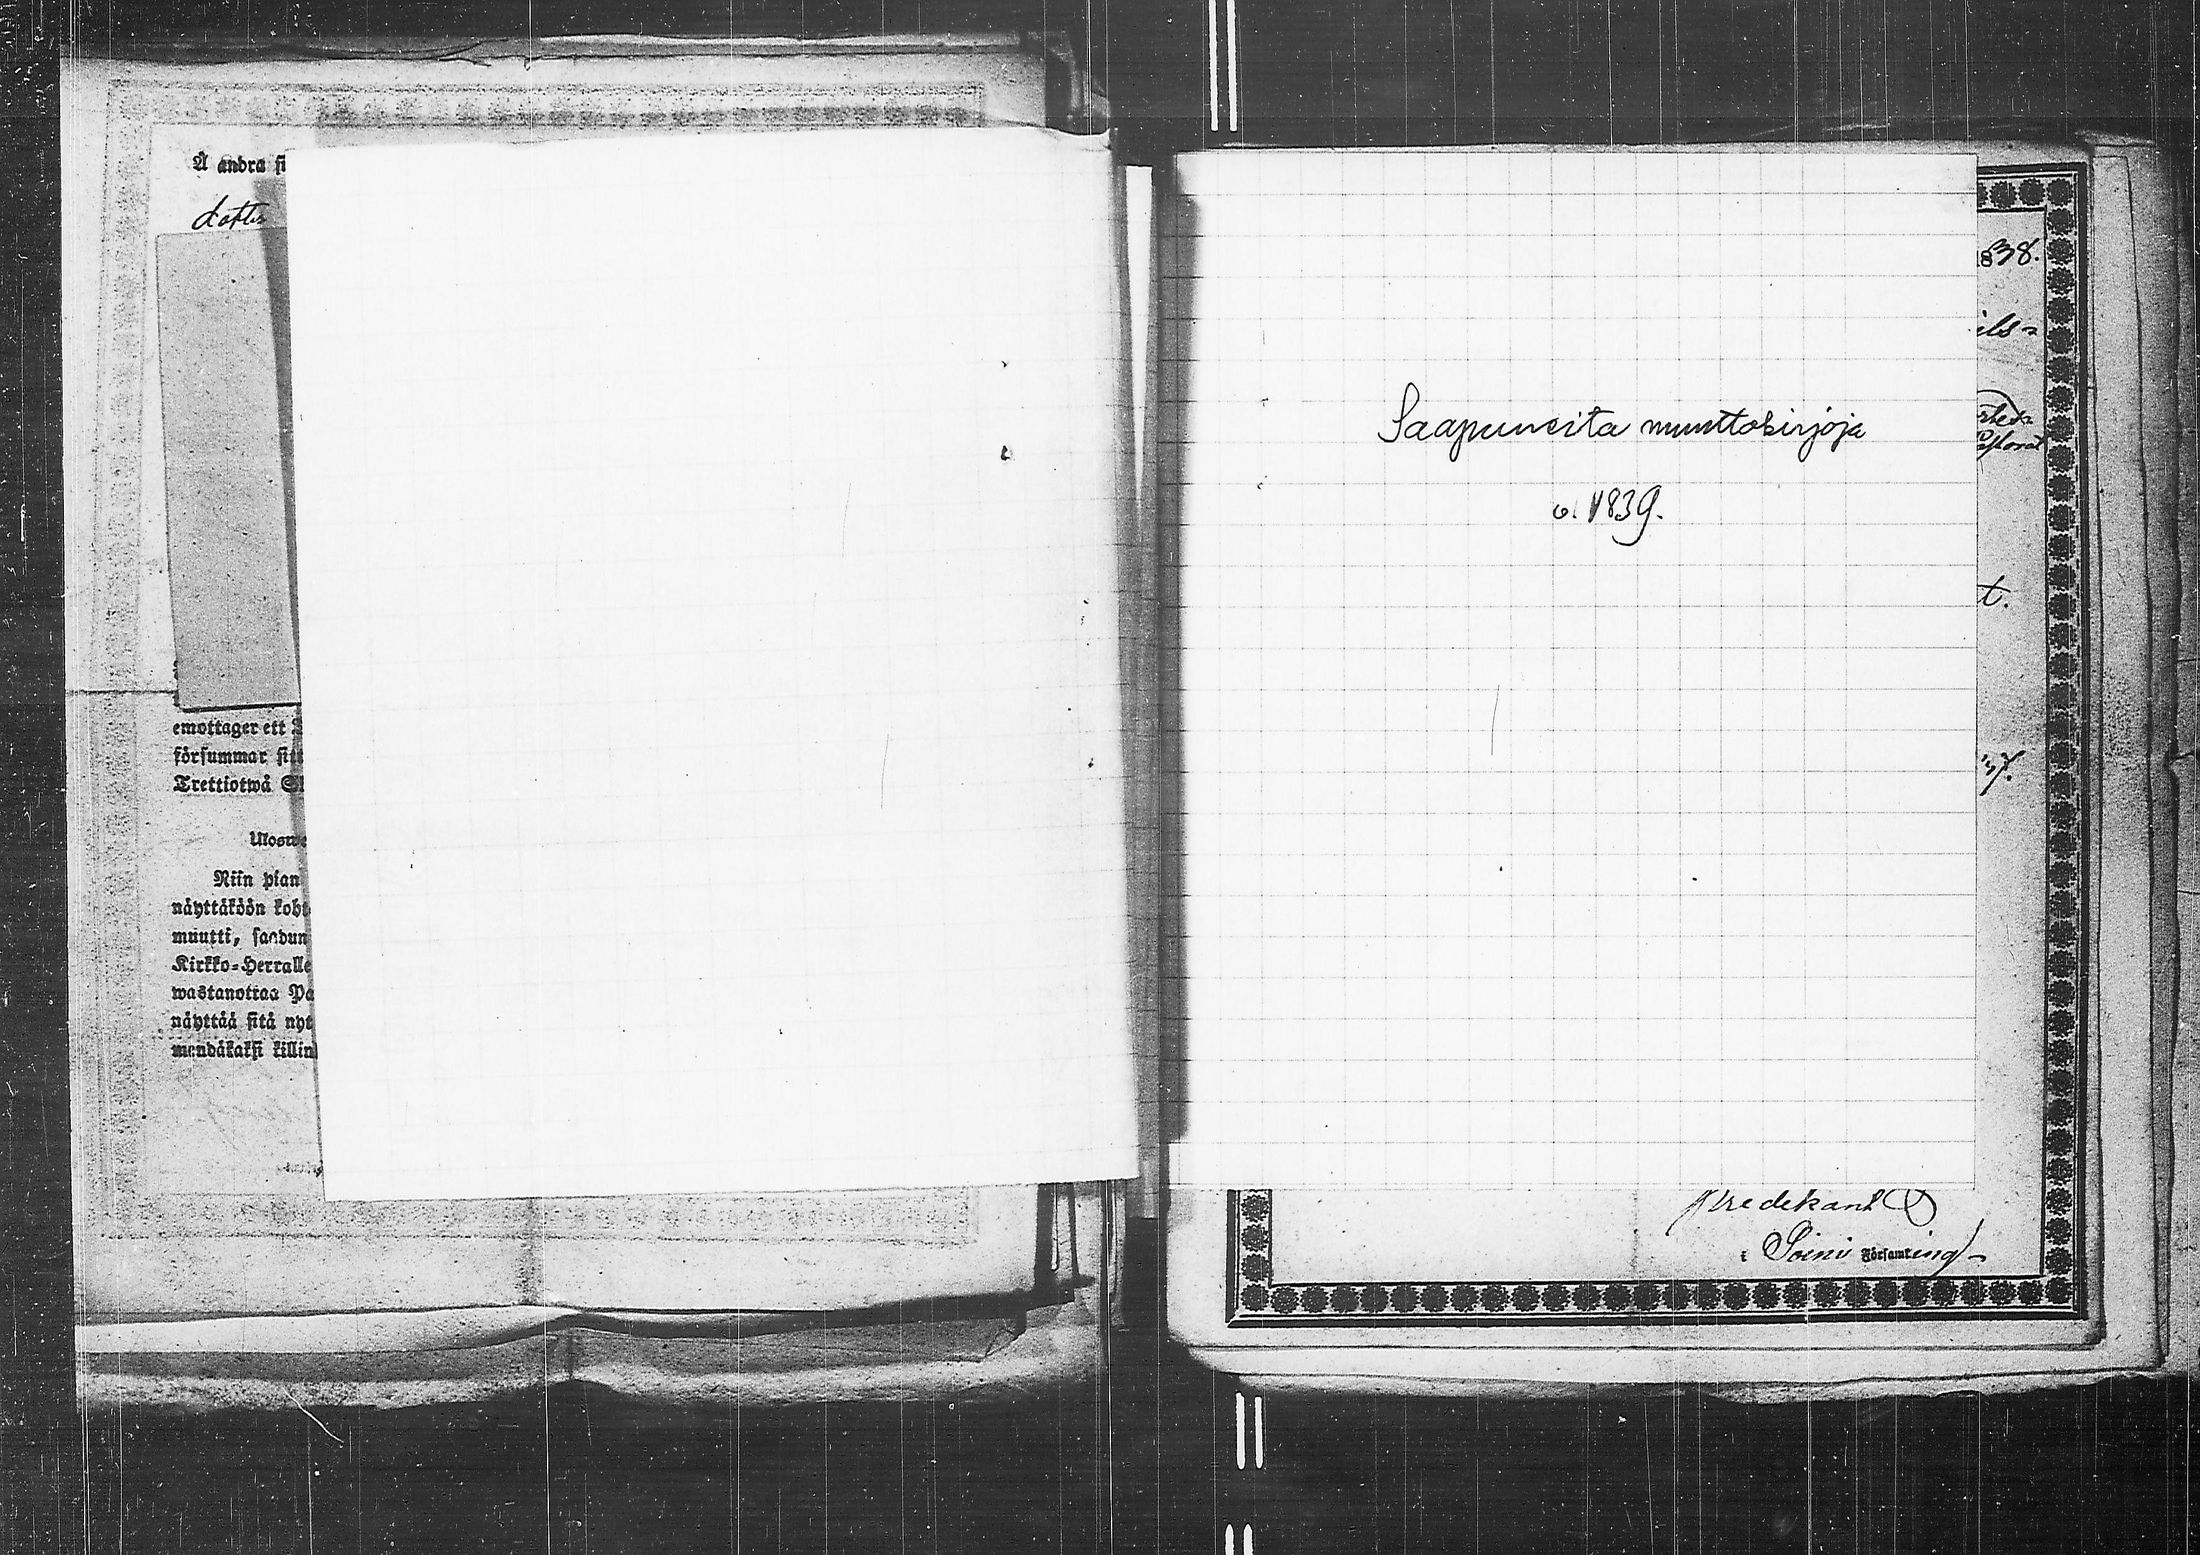 Å andra si
dotter
emottager ett
försummar sitt
Trettiotwå Sk
Uloswe
Niin pian
näyttäköön koht
muutti, saadun
Kirkko-Herralle
wastanottaa Pa
näyttää sitä nyt
mendäkaksi killin
Saapuneita muuttokirjoja
v. 1839.
1838.
ils-
t.
37.
Predekant
i Soini Församling